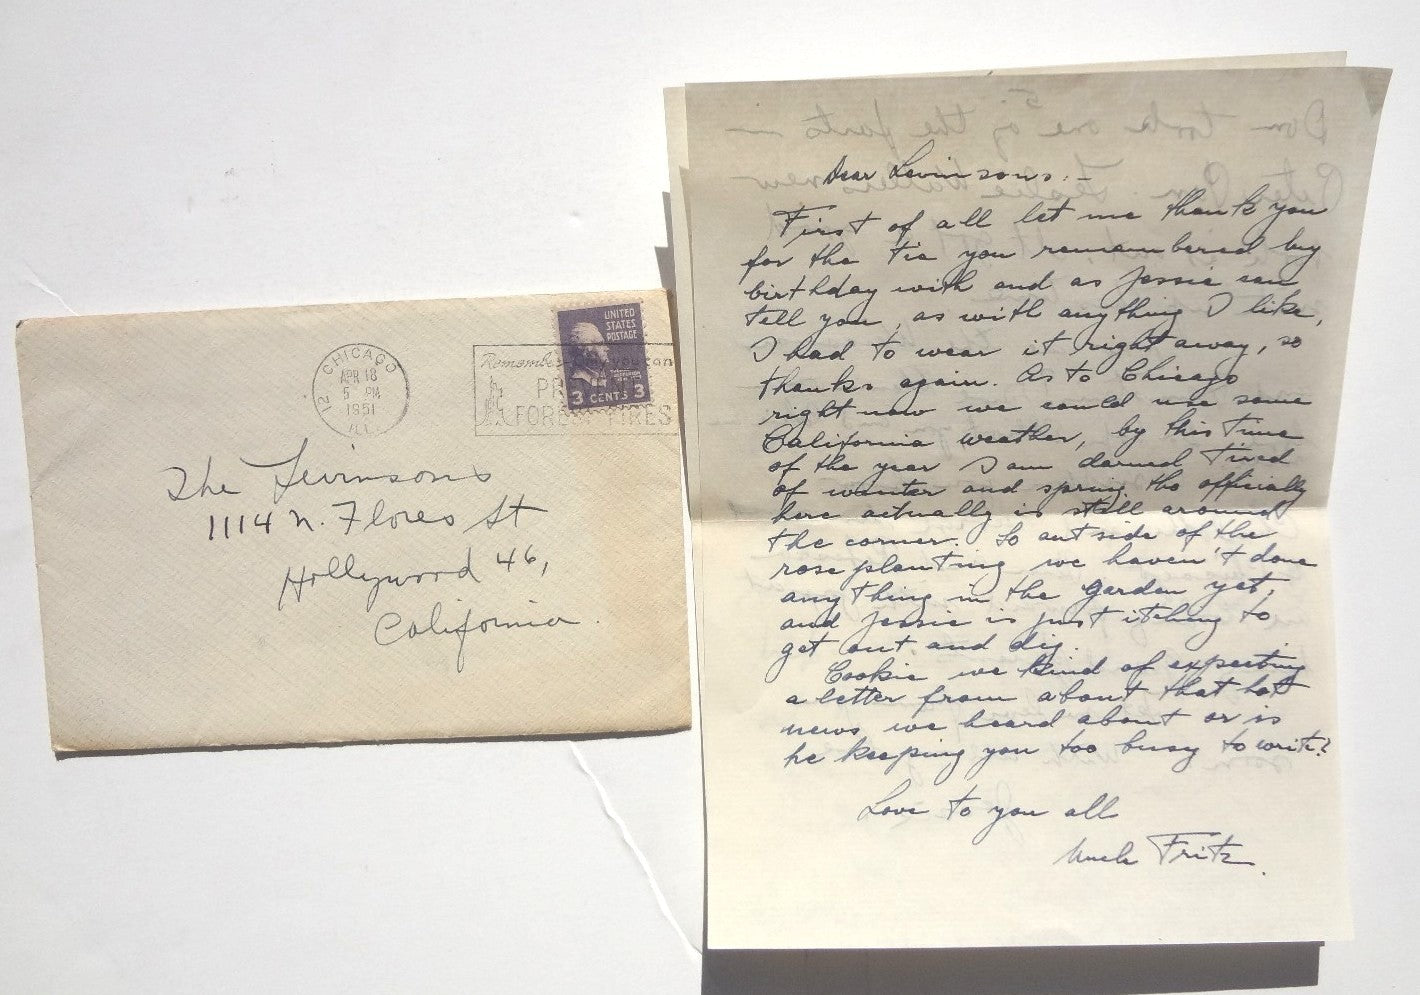 CHICAGO
APR 18
5 PM
1951
ILL.
12
Remember
PREVENT
FOREST FIRES
UNITED
STATES
POSTAGE
3 CENTS 3
The Levinsons
1114 N. Flores St
Hollywood 46,
California.
Dear Levinsons:-
First of all let me thank you
for the tie you remembered my
birthday with and as Jessie can
tell you, as with anything I like,
I had to wear it right away, so
thanks again. As to Chicago
right now we could use some
California weather, by this time
of the year I am darned tired
of winter and spring tho officially
here actually is still around
the corner. So outside of the
rose planting we haven't done
anything in the garden yet,
and Jessie is just itching to
get out and dig.
Cookie we kind of expecting
a letter from about that hot
news we heard about or is
he keeping you too busy to write?
Love to you all
Uncle Fritz.